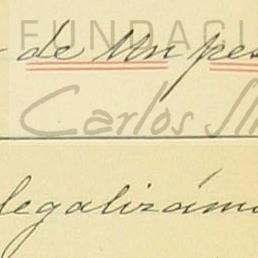 FUNDACI
de Un pes
Carlos Sli
legalizámo